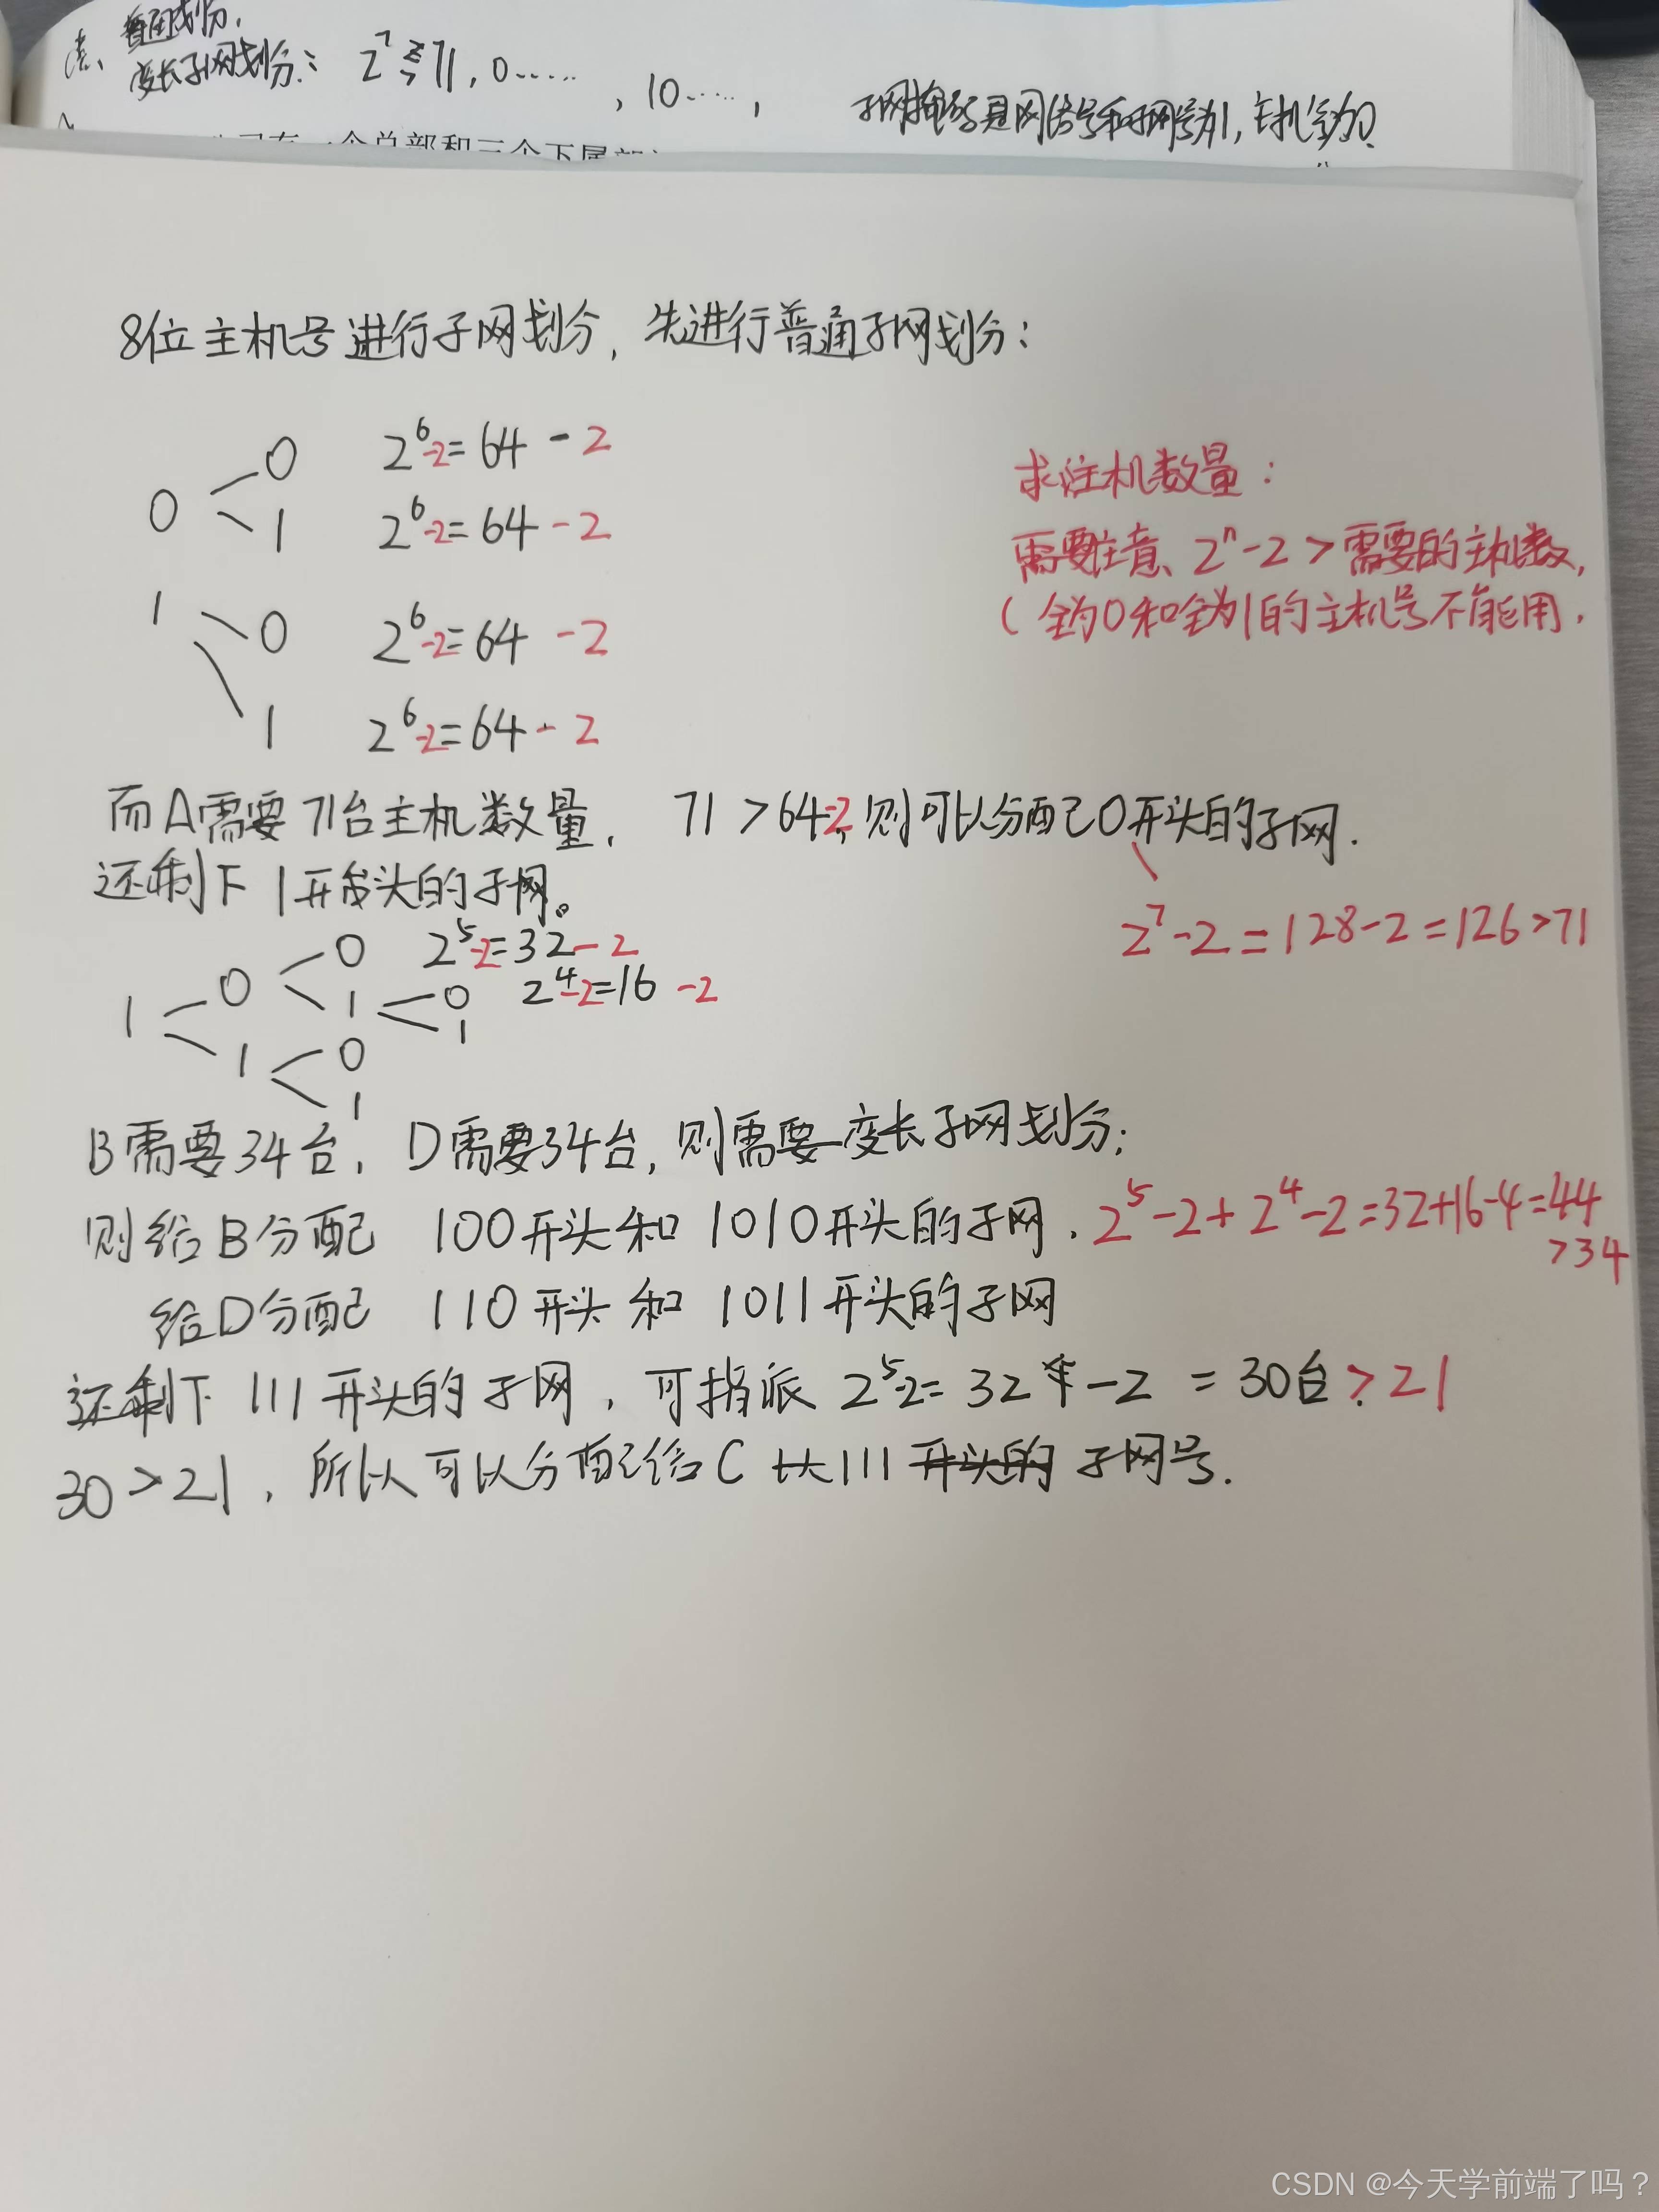 普通划分.
变长子网划分: 2^7 ≥ 71, 0……, 10……,
子网掩码是网络号和子网号为1, 主机全为0.
一个总部和三个下属部
8位主机号进行子网划分, 先进行普通子网划分:
0 0 2^6-2=64-2
1 2^6-2=64-2
1 0 2^6-2=64-2
1 2^6-2=64-2
求注机数量:
需要注意、2^n-2>需要的主机数,
(全为0和全为1的主机号不能用.
而A需要71台主机数量, 71>64-2, 则可以分配已0开头的子网.
还剩下1开头的子网。
2^7-2=128-2=126>71
1 0 0 2^5-2=32-2
1 0 2^4-2=16-2
1
1 0
1
B需要34台, D需要34台, 则需要变长子网划分;
则给B分配 100开头和1010开头的子网. 2^5-2+2^4-2=32+16-4=44
>34
给D分配 110开头和 1011开头的子网
还剩下 111开头的子网, 可指派 2^5-2=32-2=30台>21
30>21, 所以可以分配给C 以111开头的子网号.
CSDN @今天学前端了吗？